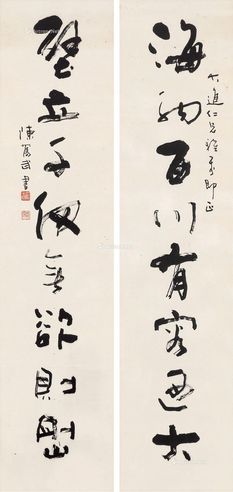 海納百川有容乃大
大進仁兄雅屬即正
壁立千仞無欲則剛
陳篤武書